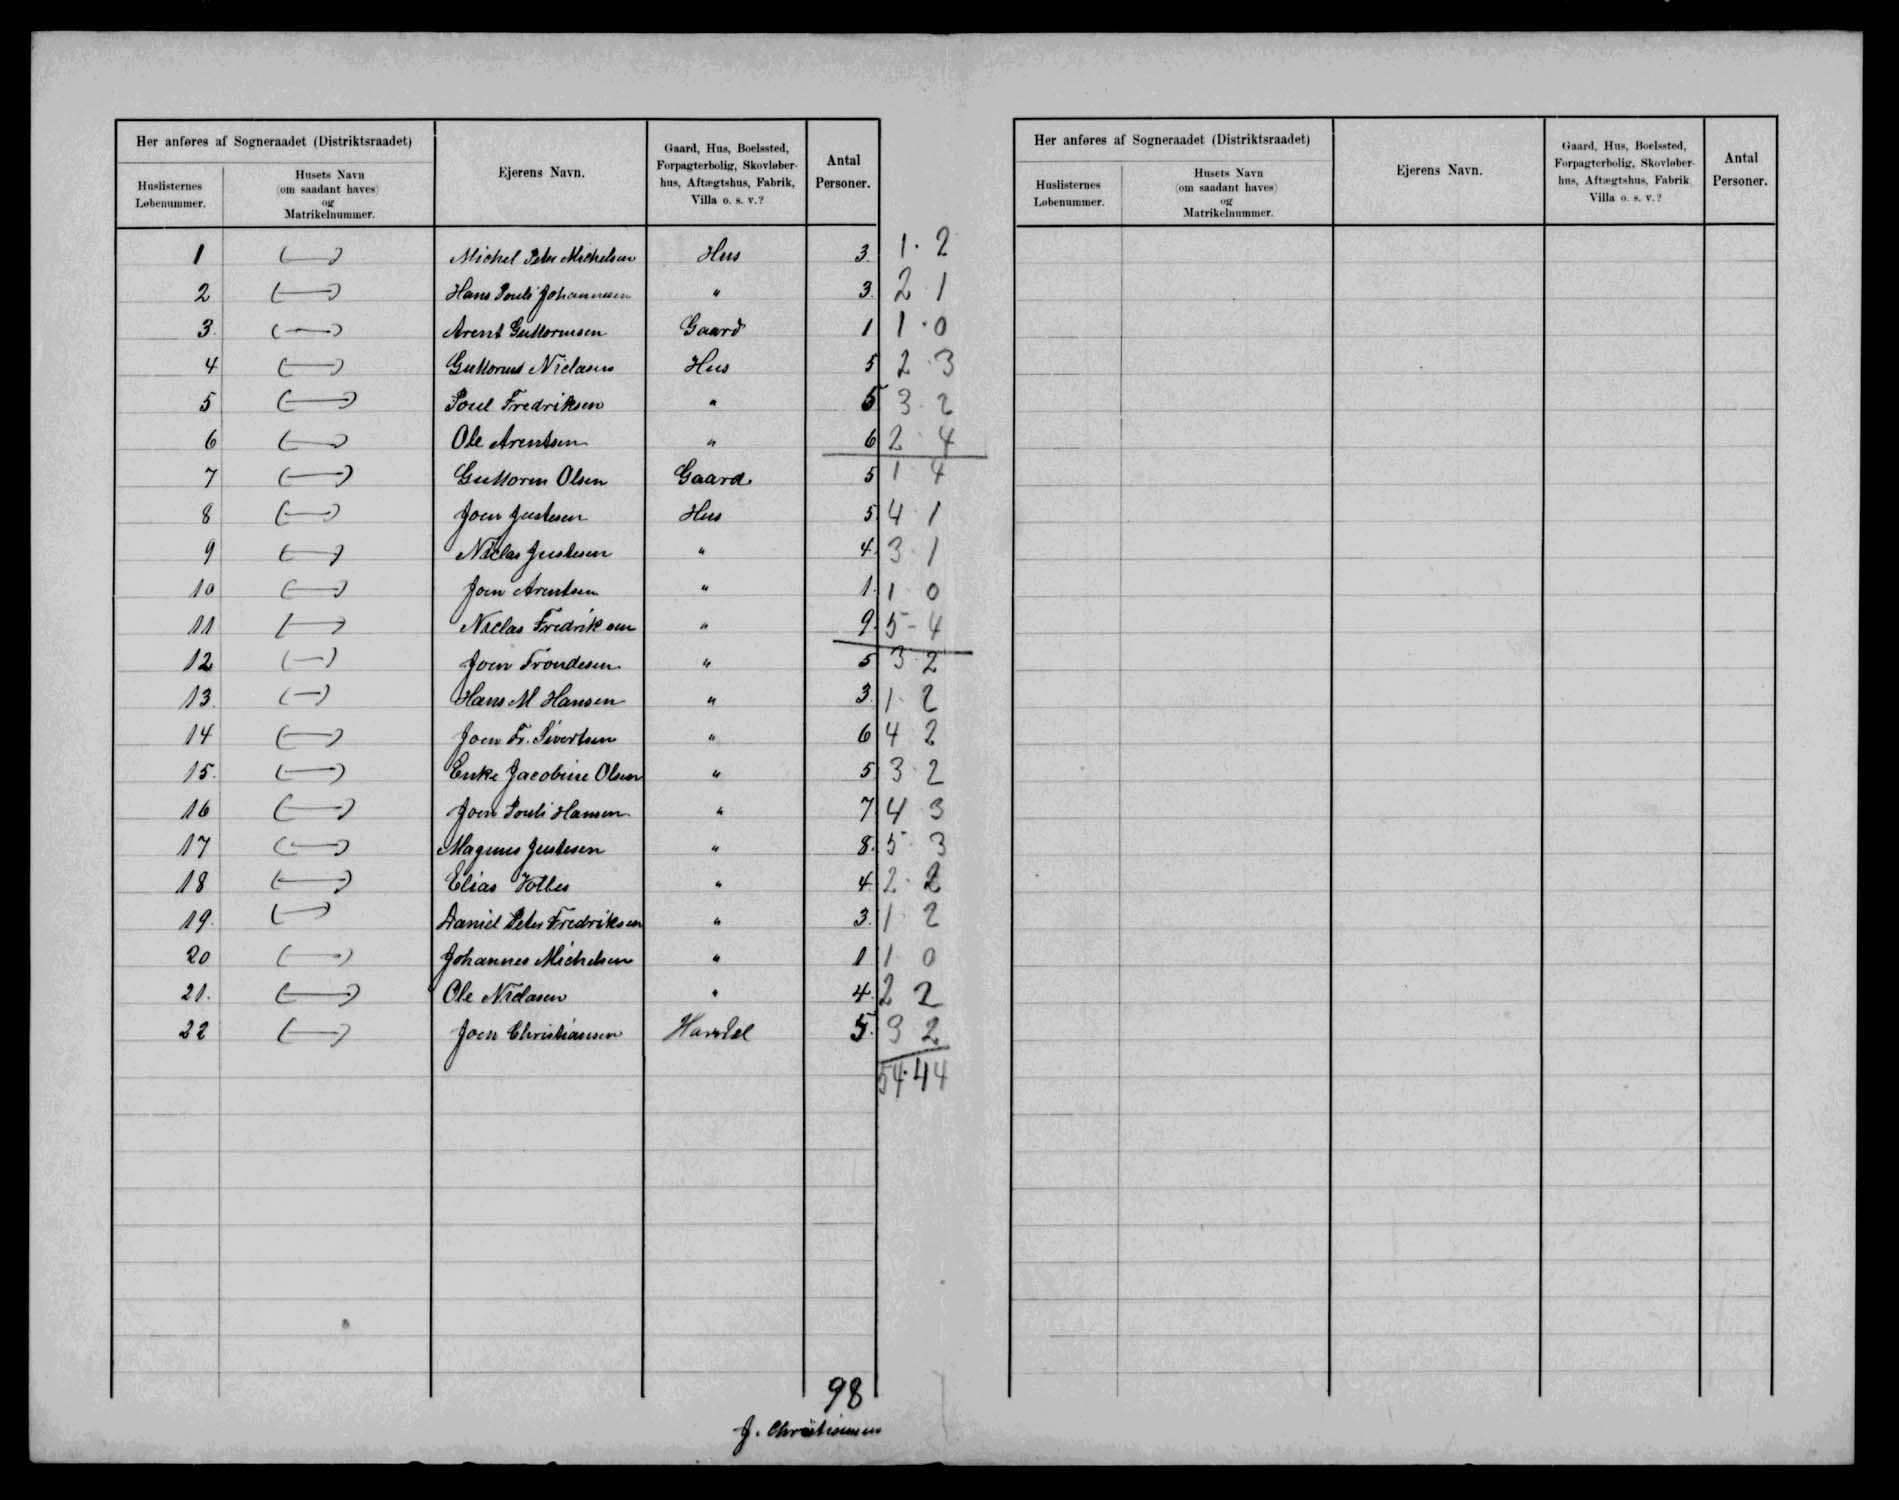 Her anføres af Sogneraadet (Distriktsraadet)
Huslisternes Løbenummer.
Husets Navn (om saadant haves) og Matrikelnummer.
Ejerens Navn.
Gaard, Hus, Boelssted, Forpagterbolig, Skovløberhus, Aftægtshus, Fabrik, Villa o. s. v.?
Antal Personer.
1 Michel Peter Michelsen Hus 3 1 · 2
2 Hans Pouli Johannesen " 3 2 1
3 Arent Guttormsen Gaard 1 1 · 0
4 Guttorm Niclasen Hus 5 2 · 3
5 Poul Fredriksen " 5 3 · 2
6 Ole Arentsen " 6 2 · 4
7 Guttorm Olsen Gaard 5 1 4
8 Joen Justesen Hus 5 4 · 1
9 Niclas Justesen " 4 3 · 1
10 Joen Arentsen " 1 1 0
11 Niclas Fredriksen " 9 5 - 4
12 Joen Trondesen " 5 3 · 2
13 Hans M Hansen " 3 1 · 2
14 Joen Fr. Sivertsen " 6 4 2
15. Enke Jacobine Olsen " 5 3 · 2
16 Joen Pouli Hansen " 7 4 3
17 Magnus Justesen " 8 5 · 3
18 Elias " 4 2 · 2
19. Daniel Peter Fredriksen " 3 1 · 2
20 Johannes Michelsen " 1 1 0
21. Ole Niclasen " 4 2 2
22 Joen Christiansen 5 3 2
54 · 44
98
J. Christiansen
Her anføres af Sogneraadet (Distriktsraadet)
Huslisternes Løbenummer.
Husets Navn (om saadant haves) og Matrikelnummer.
Ejerens Navn.
Gaard, Hus, Boelssted, Forpagterbolig, Skovløberhus, Aftægtshus, Fabrik Villa o. s. v.?
Antal Personer.